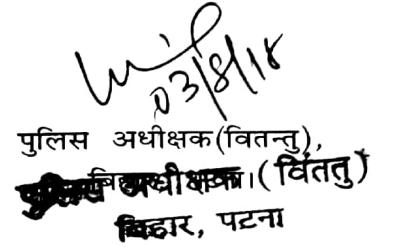 03/8/18
पुलिस अधीक्षक(वितन्तु),
अधीक्षक (विंततु)
बिहार, पटना